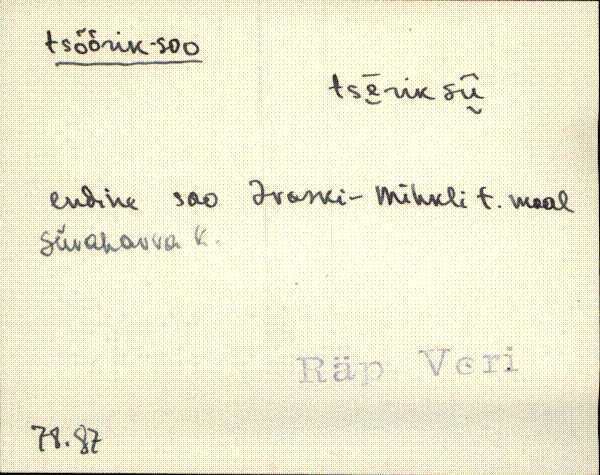 tsõõrik-soo
tsē̮rik sū̬
endine soo Ivaski-Mihkli t. maal
Süvahavva k.
Räp Veri
78.87